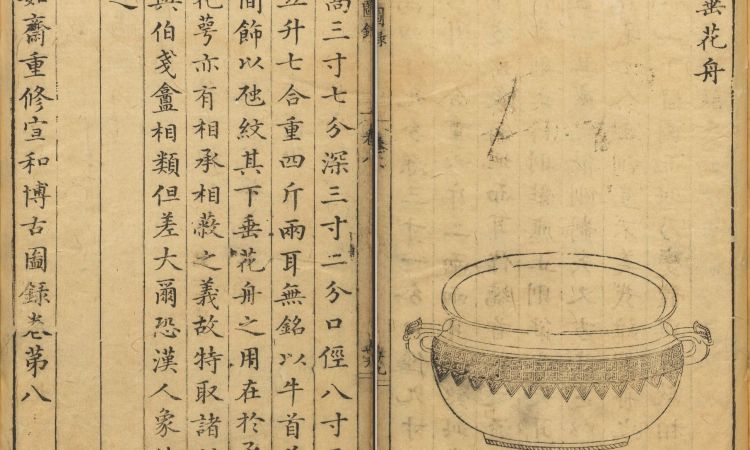 垂花舟
圖錄 卷八
高三寸七分深三寸二分口徑八寸
五升七合重四斤兩耳無銘以牛首
間飾以紋其下垂花舟之用在於承
花萼亦有相承相蔽之義故特取諸
與伯戔盦相類但差大爾恐漢人象
之
如齋重修宣和博古圖録卷第八